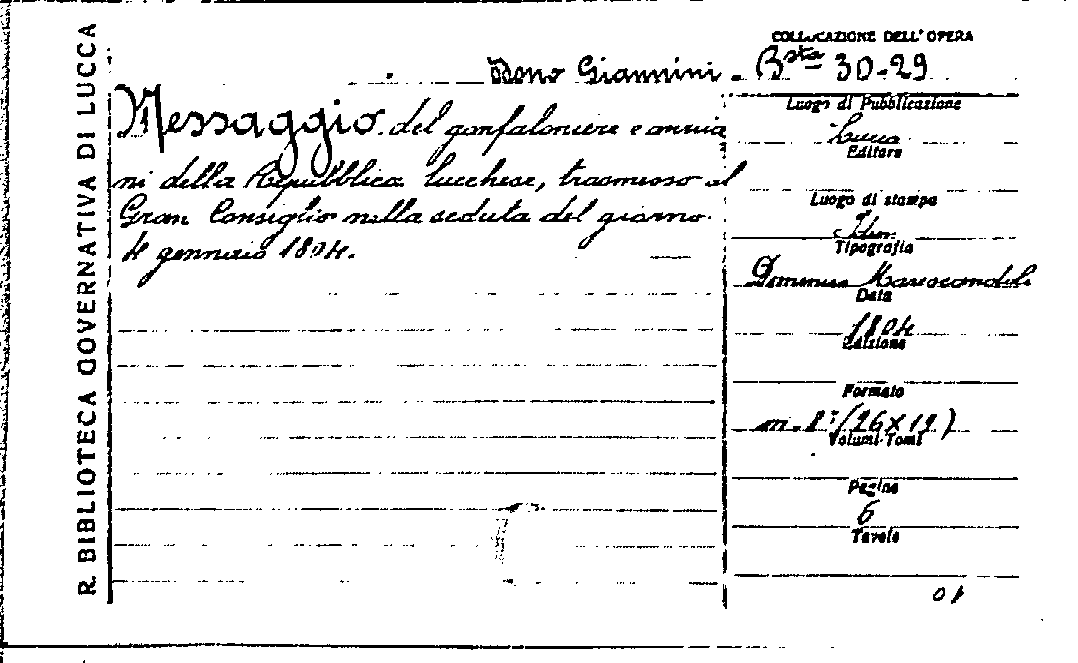 R. BIBLIOTECA GOVERNATIVA DI LUCCA
COLLOCAZIONE DELL'OPERA
Dono Giannini - Bsta 30-29
Messaggio del gonfaloniere e anzia
ni della Repubblica lucchese, trasmesso al
Gran Consiglio nella seduta del giorno
4 gennaio 1804.
Luogo di Pubblicazione
Lucca
Editore
Luogo di stampa
Idem
Tipografia
Domenico Marescandoli
Data
1804
Edizione
Formato
in-8° (26×19)
Volumi-Tomi
Pagine
6
Tavole